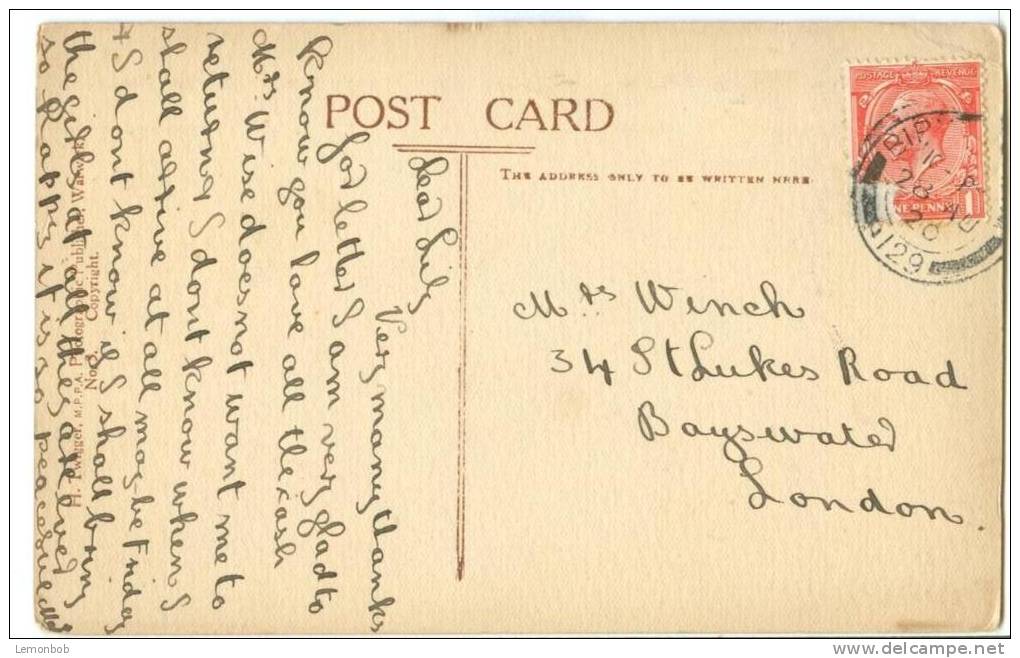 POST CARD
THE ADDRESS ONLY TO BE WRITTEN HERE.
POSTAGE REVENUE
ONE PENNY
1
28
20
129
Mrs Winch
34 St Lukes Road
Bayswater
London.
Dear Lily
Very many thanks
for letter I am very glad to
know you have all the cash
Mrs Wise does not want me to
return I dont know when I
shall arrive at all maybe Friday
& I dont know if I shall bring
the girls at all they are
so happy it is so peaceful
H. Twigger, M.P.P.A. Photographic Publisher, Warwick.
No 3. Copyright.
Lemonbob
delcampe.net